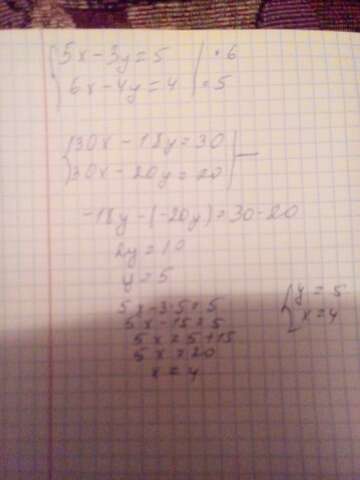 5x-3y=5 | ·6
6x-4y=4 | ·5
30x-18y=30
30x-20y=20
-18y-(-20y)=30-20
2y=10
y=5
5x-3·5=5
5x-15=5
5x=5+15
5x=20
x=4
y=5
x=4